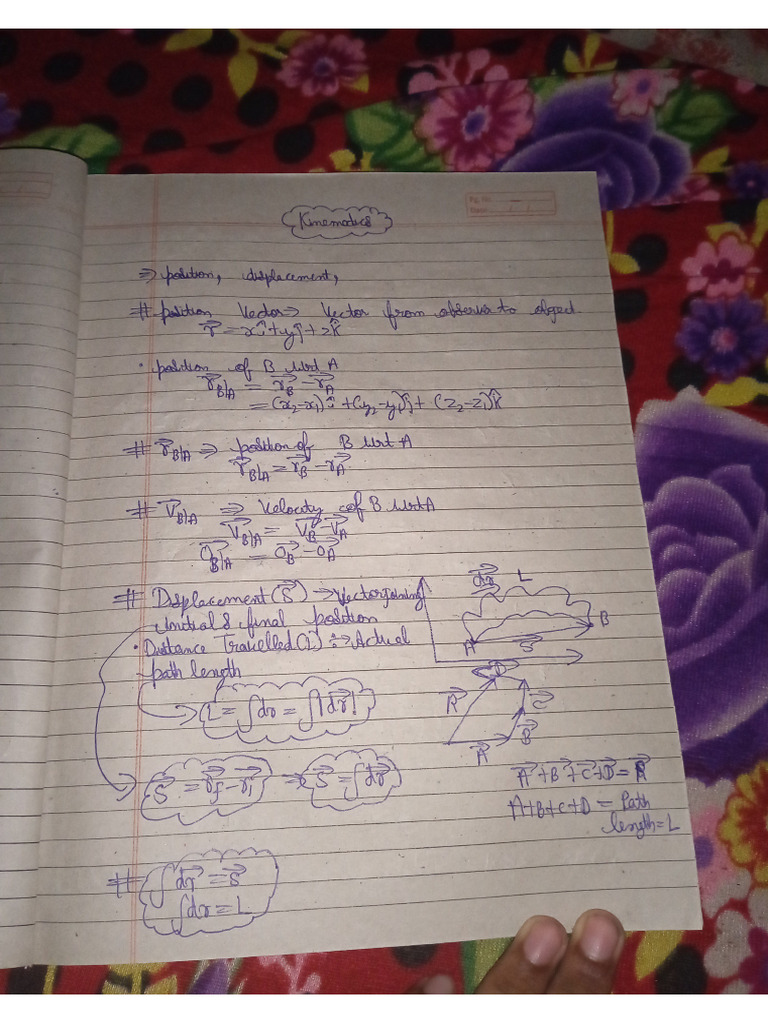 Pg. No.
Date
Kinematics
⇒ position, displacement,
# position Vector ⇒ Vector from observer to object.
r⃗ = xî + yĵ + zk̂
· position of B wrt A
r⃗B/A = r⃗B - r⃗A
= (x₂-x₁)î + (y₂-y₁)ĵ + (z₂-z₁)k̂
# r⃗B/A ⇒ position of B wrt A
r⃗B/A = r⃗B - r⃗A
# V⃗B/A ⇒ Velocity of B wrt A
V⃗B/A = V⃗B - V⃗A
a⃗B/A = a⃗B - a⃗A
# Displacement (S⃗) → Vector joining
initial & final position
· Distance Travelled (L) :→ Actual
path length
L = ∫dr = ∫|dr⃗|
S⃗ = r⃗f - r⃗i ⇒ S⃗ = ∫dr⃗
# ∫dr⃗ = S⃗
∫dr = L
dr⃗ L
A S⃗ B
D⃗
R⃗ C⃗
A⃗ B⃗
A⃗ + B⃗ + C⃗ + D⃗ = R⃗
A + B + C + D = Path
length = L